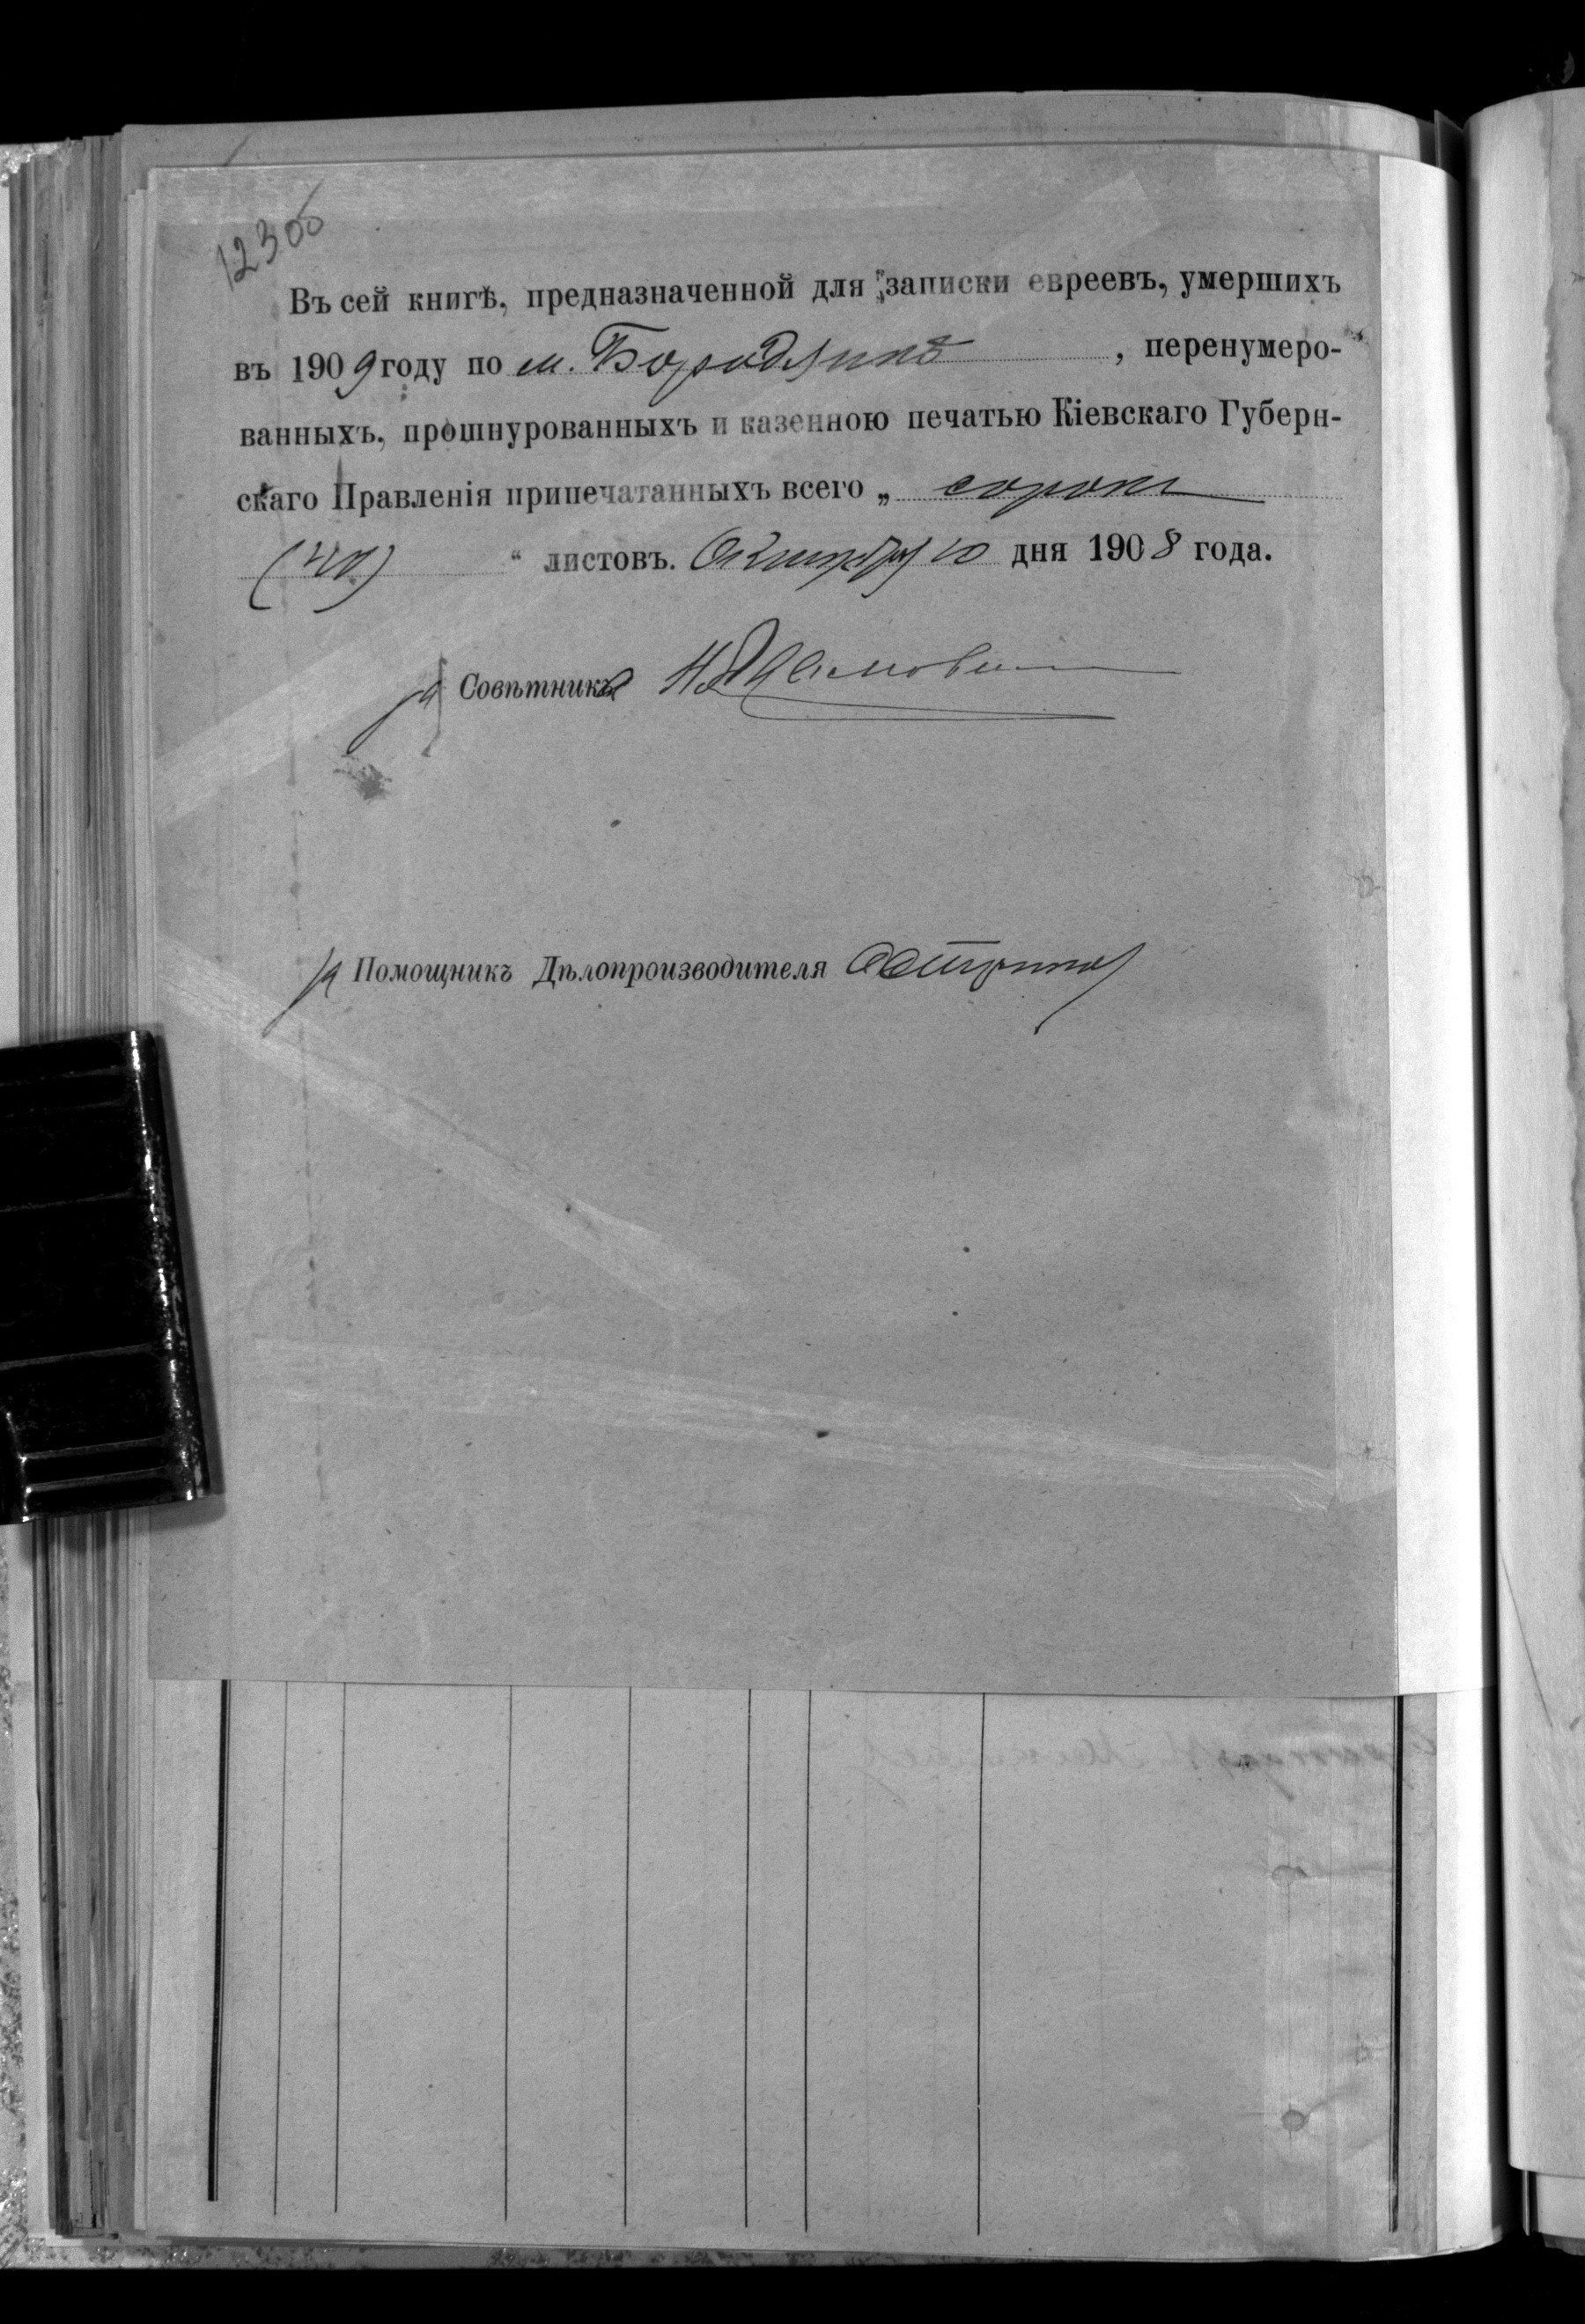 123об
Въ сей книгѣ, предназначенной для записки евреевъ, умершихъ
въ 1909 году по м. Бородянкѣ, перенумеро-
ванныхъ, прошнурованныхъ и казенною печатью Кіевскаго Губерн-
скаго Правленія припечатанныхъ всего „ сорокъ
(40) “ листовъ. Октября 10 дня 1908 года.
за Совѣтника
за Помощникъ Дѣлопроизводителя